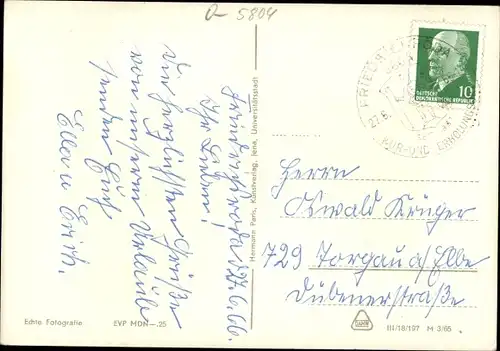 a-5804
Friedrichroda, 27.6.66.
Ihr Lieben!
Die herzlichsten Grüße
von unserm Urlaub
senden Euch
Ella u. Erich.
Echte Fotografie
EVP MDN -.25
Hermann Paris, Kunstverlag, Jena, Universitätsstadt
FRIEDRICHRODA
27.6.
KUR- UND ERHOLUNGS
10
DEUTSCHE
DEMOKRATISCHE REPUBLIK
Herrn
Oswald Krüger
729 Torgau a/Elbe
Dübenerstraße
III/18/197 M 3/65